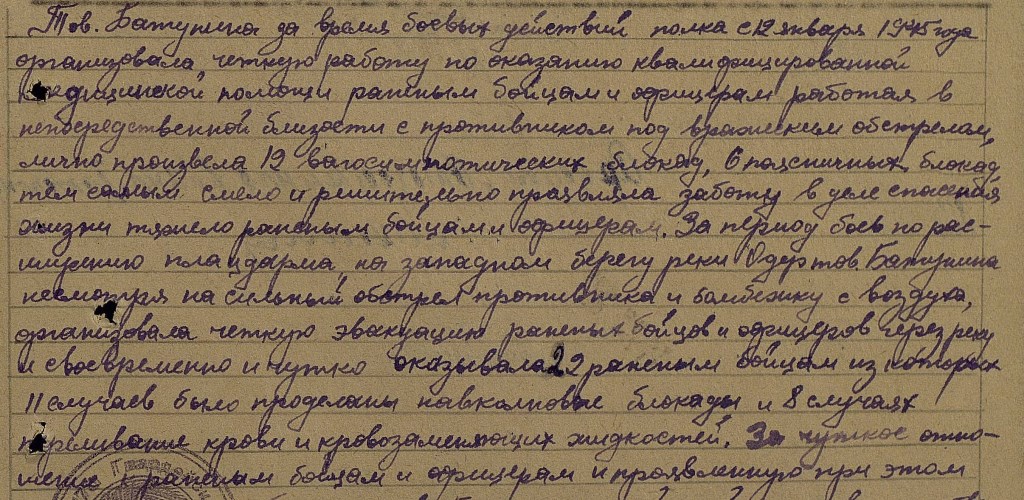 Тов. Батунина за время боевых действий полка с 12 января 1945 года
организовала четкую работу по оказанию квалифицированной
медицинской помощи раненым бойцам и офицерам работая в
непосредственной близости с противником под вражеским обстрелом,
лично произвела 19 вагосимпотических блокад, 6 поясничных блокад
тем самым смело и решительно проявляла заботу в деле спасения
жизни тяжело раненым бойцам и офицерам. За период боев по рас-
ширению плацдарма на западном берегу реки Одер тов. Батунина
несмотря на сильный обстрел противника и бомбежку с воздуха,
организовала четкую эвакуацию раненых бойцов и офицеров через реку
и своевременно и чутко оказывала 29 раненым бойцам из которых
11 случаев было проделаны блокады и 8 случаях
переливание крови и кровозаменяющих жидкостей. За чуткое отно-
шение к раненым бойцам и офицерам и проявленную при этом